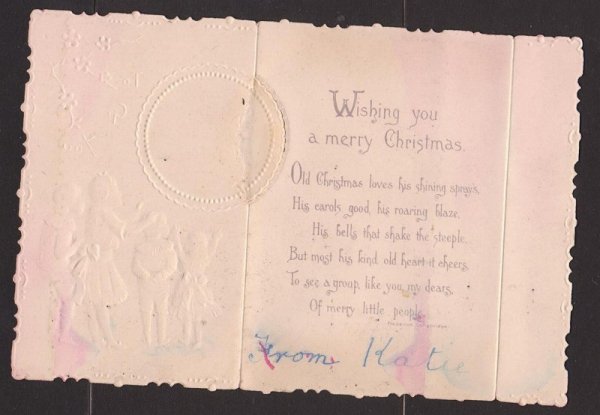 Wishing you
a merry Christmas.
Old Christmas loves his shining sprays,
His carols good, his roaring blaze,
His bells that shake the steeple,
But most his kind old heart it cheers,
To see a group, like you, my dears,
Of merry little people.
From Katie